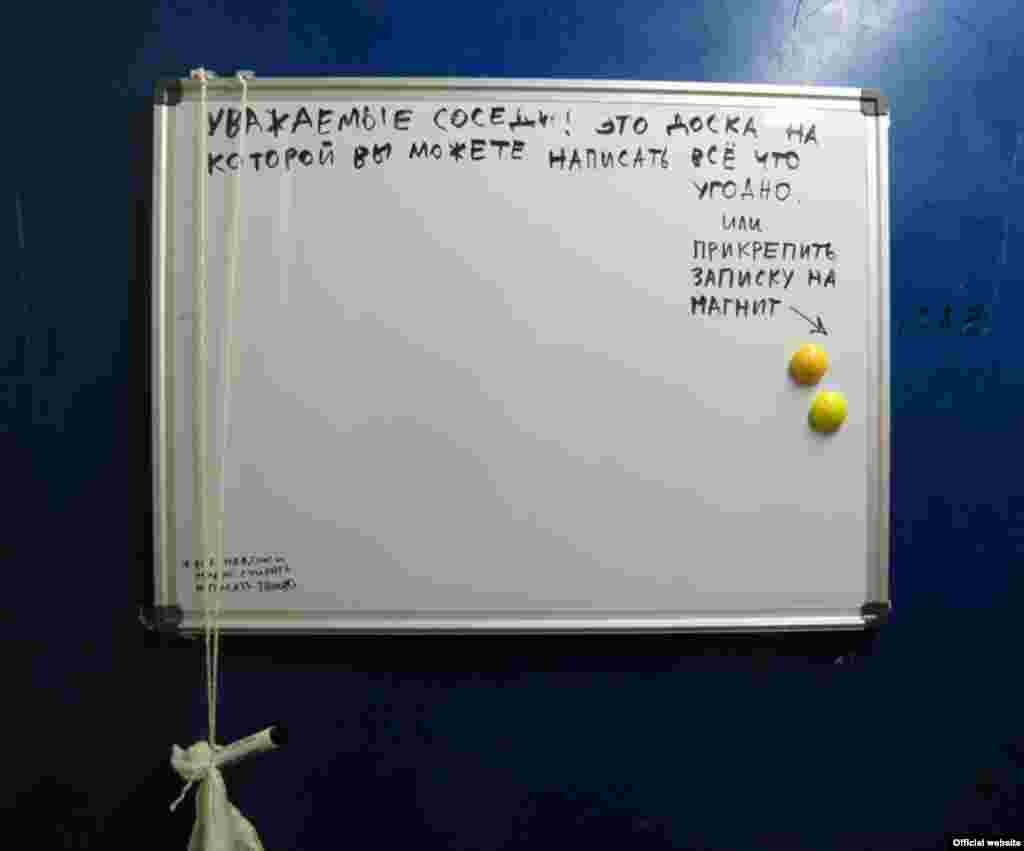 УВАЖАЕМЫЕ СОСЕДИ! ЭТО ДОСКА НА
КОТОРОЙ ВЫ МОЖЕТЕ НАПИСАТЬ ВСЁ ЧТО
УГОДНО.
ИЛИ
ПРИКРЕПИТЬ
ЗАПИСКУ НА
МАГНИТ
Official website